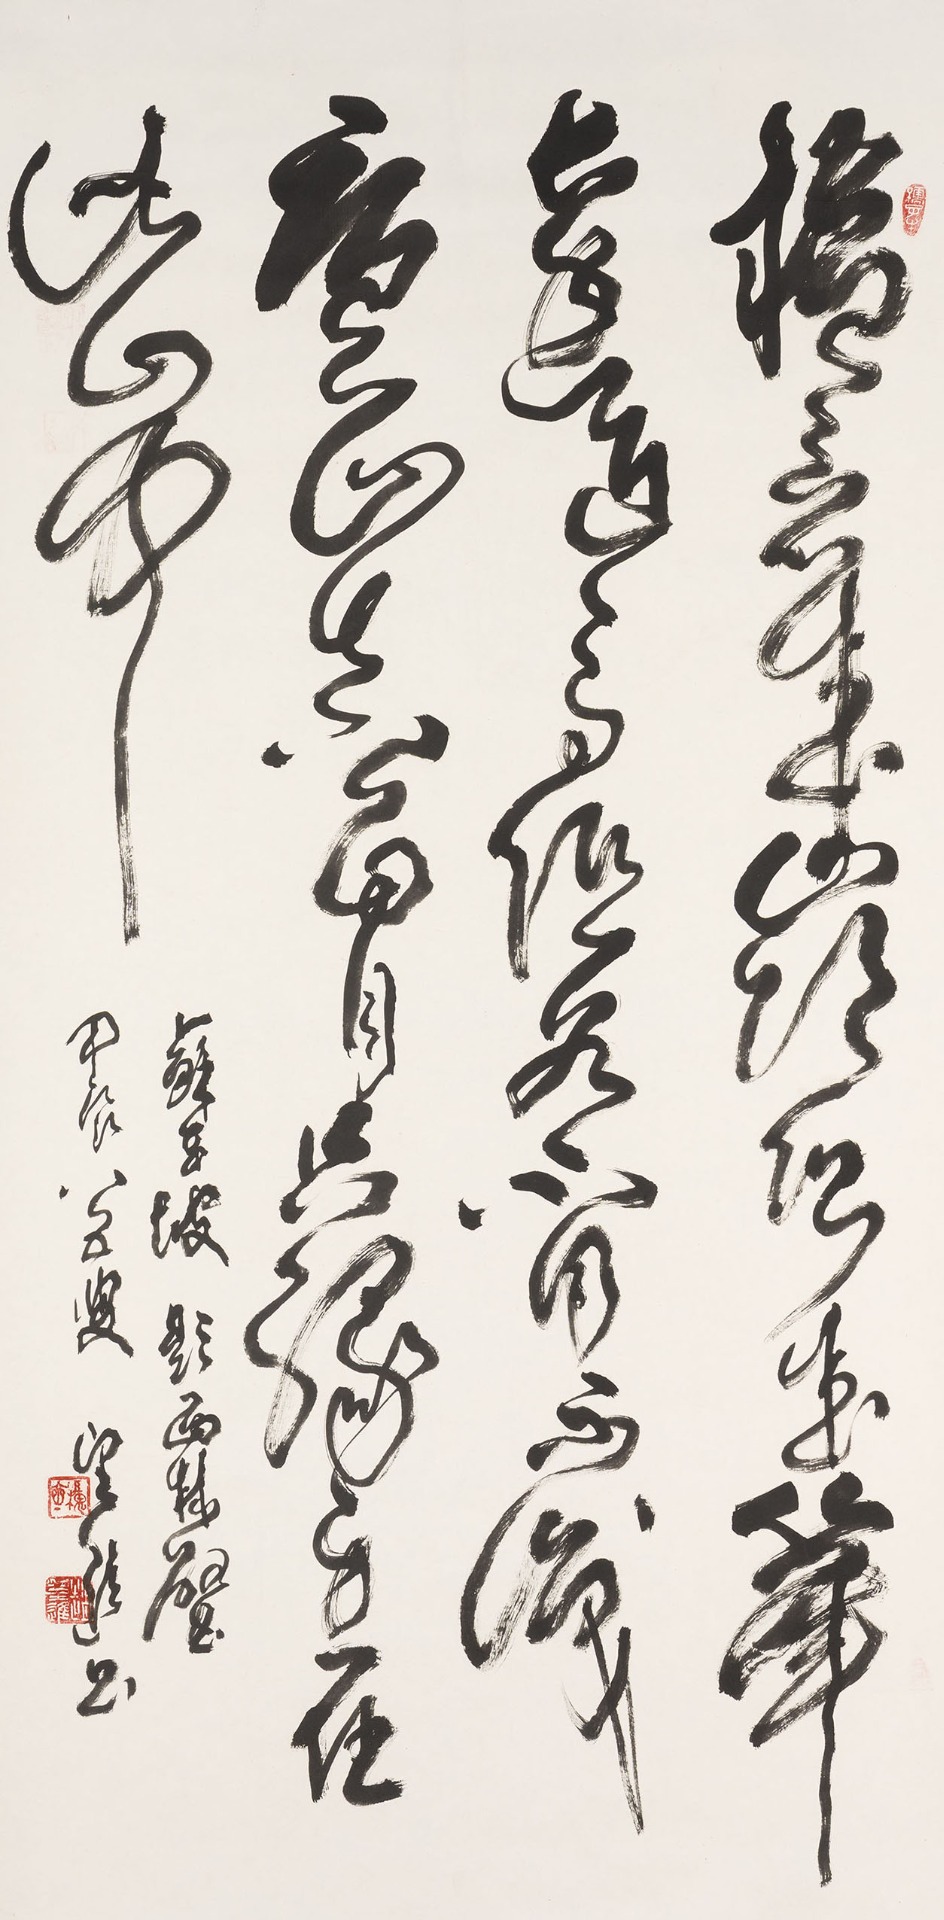 橫看成嶺側成峯
遠近高低各不同不識
廬山真面目只緣身在
此山中
蘇東坡 題西林壁
甲 八五叟 望 書